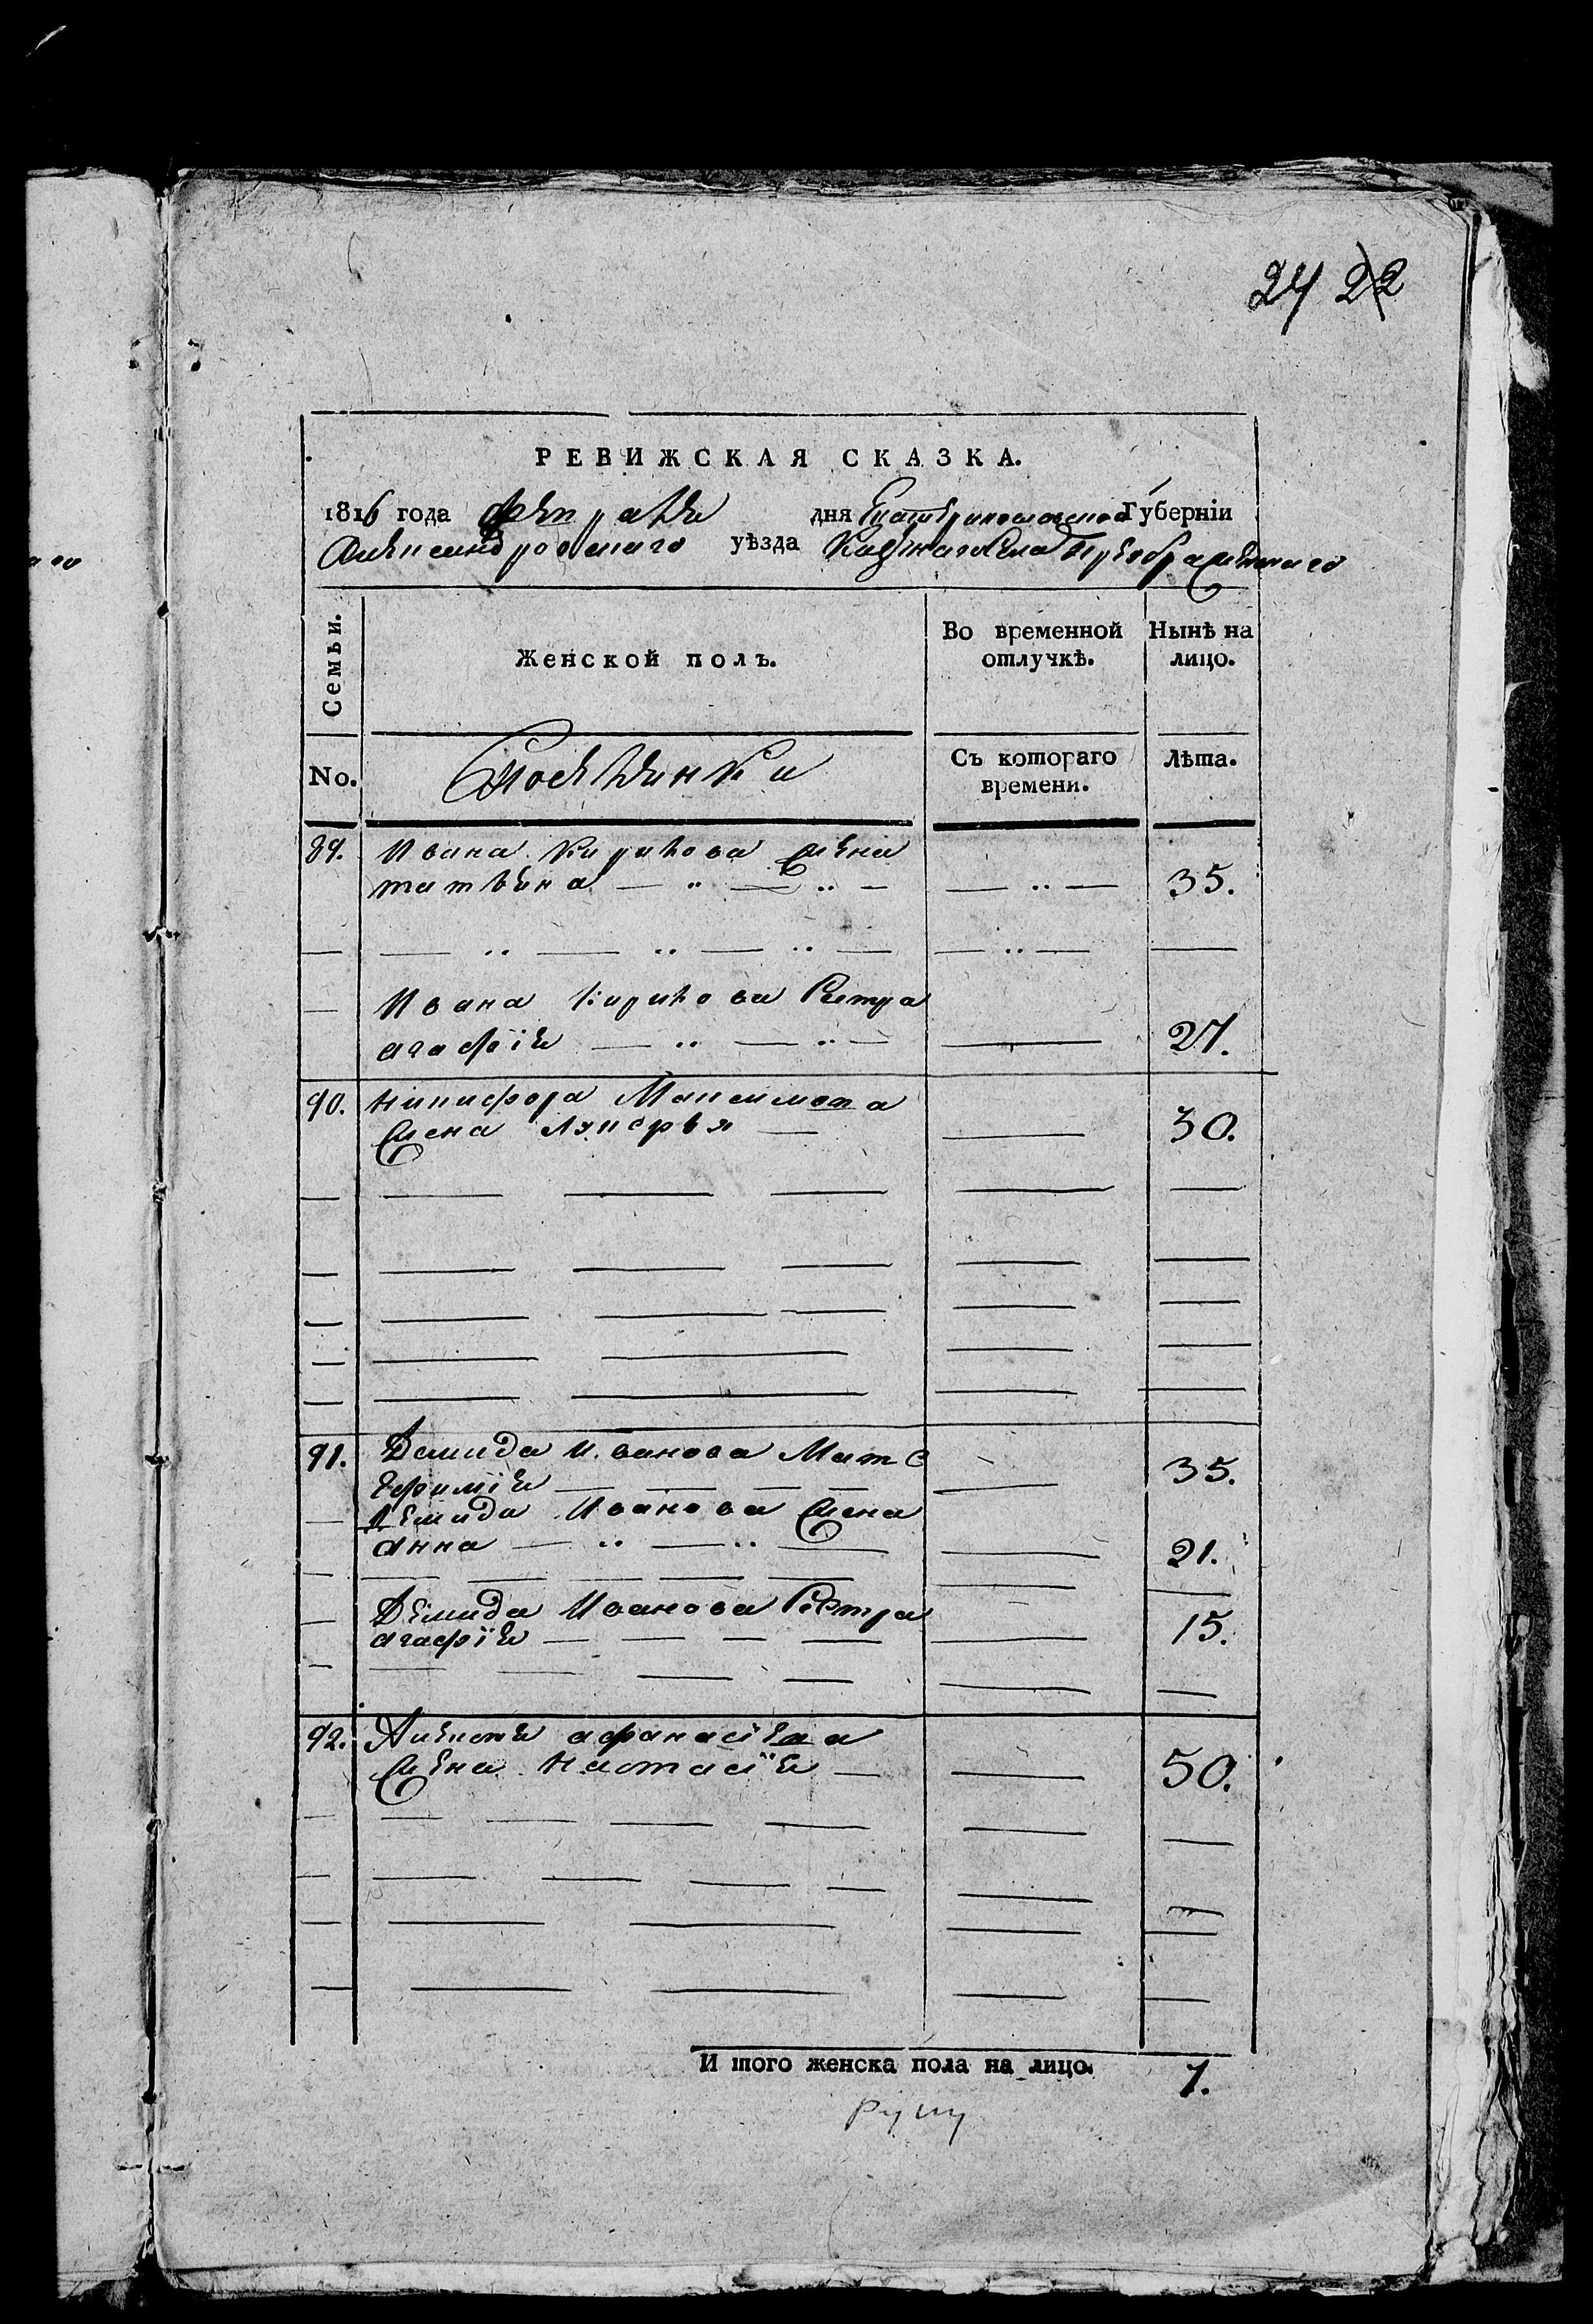 24 22
РЕВИЖСКАЯ СКАЗКА.
1816 года февраля дня Екатеринославской Губерніи
Александровскаго уѣзда Казеннаго села Преображенскаго
Семьи.
Женской полъ.
Во временной отлучкѣ.
Нынѣ на лицо.
No.
Съ котораго времени.
Лѣта.
89. Ивана Кирилова жена
татьяна 35.
Ивана Кирилова Сестра
агафія 27.
90. Никифора Максимова
жена 30.
91. Демида Иванова Мать
Ефимія 35.
Демида Иванова жена
анна 21.
Демида Иванова Сестра
агафія 15.
92. Алексея афанасіева
жена Настасія 50.
И того женска пола на лицо. 7.